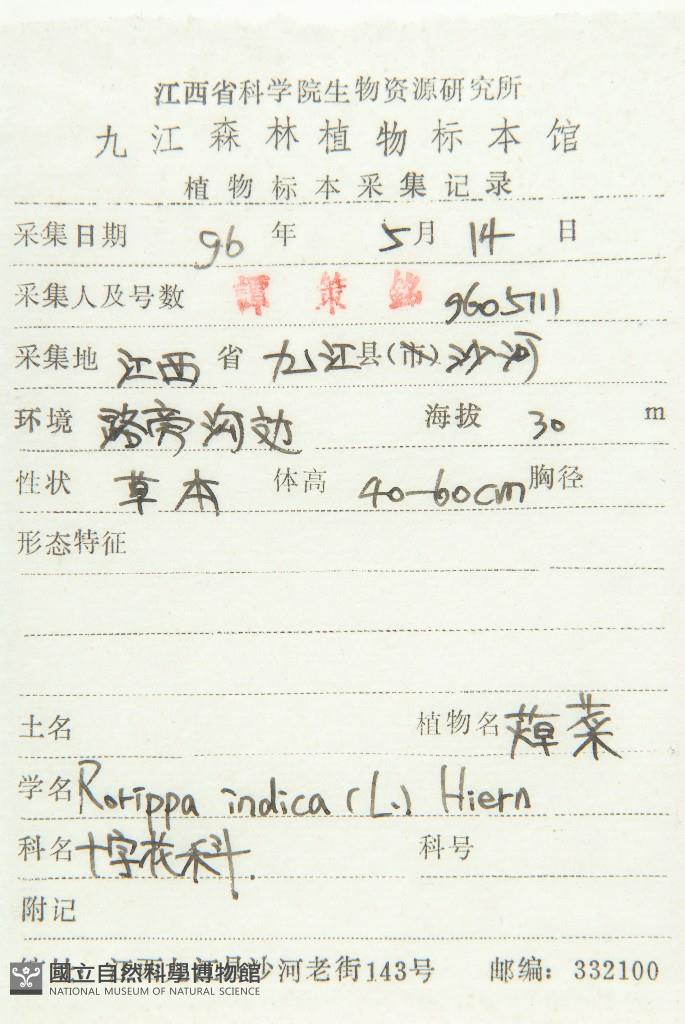 江西省科学院生物资源研究所
九江森林植物标本馆
植物标本采集记录
采集日期 96 年 5月 14 日
采集人及号数 譚策銘 9605111
采集地 江西 省 九江县(市)沙河
环境 路旁沟边 海拔 30 m
性状 草本 体高 40-60cm 胸径
形态特征
土名 植物名 蔊菜
学名 Rorippa indica (L.) Hiern
科名 十字花科. 科号
附记
江西九江县沙河老街143号 邮编: 332100
國立自然科學博物館
NATIONAL MUSEUM OF NATURAL SCIENCE